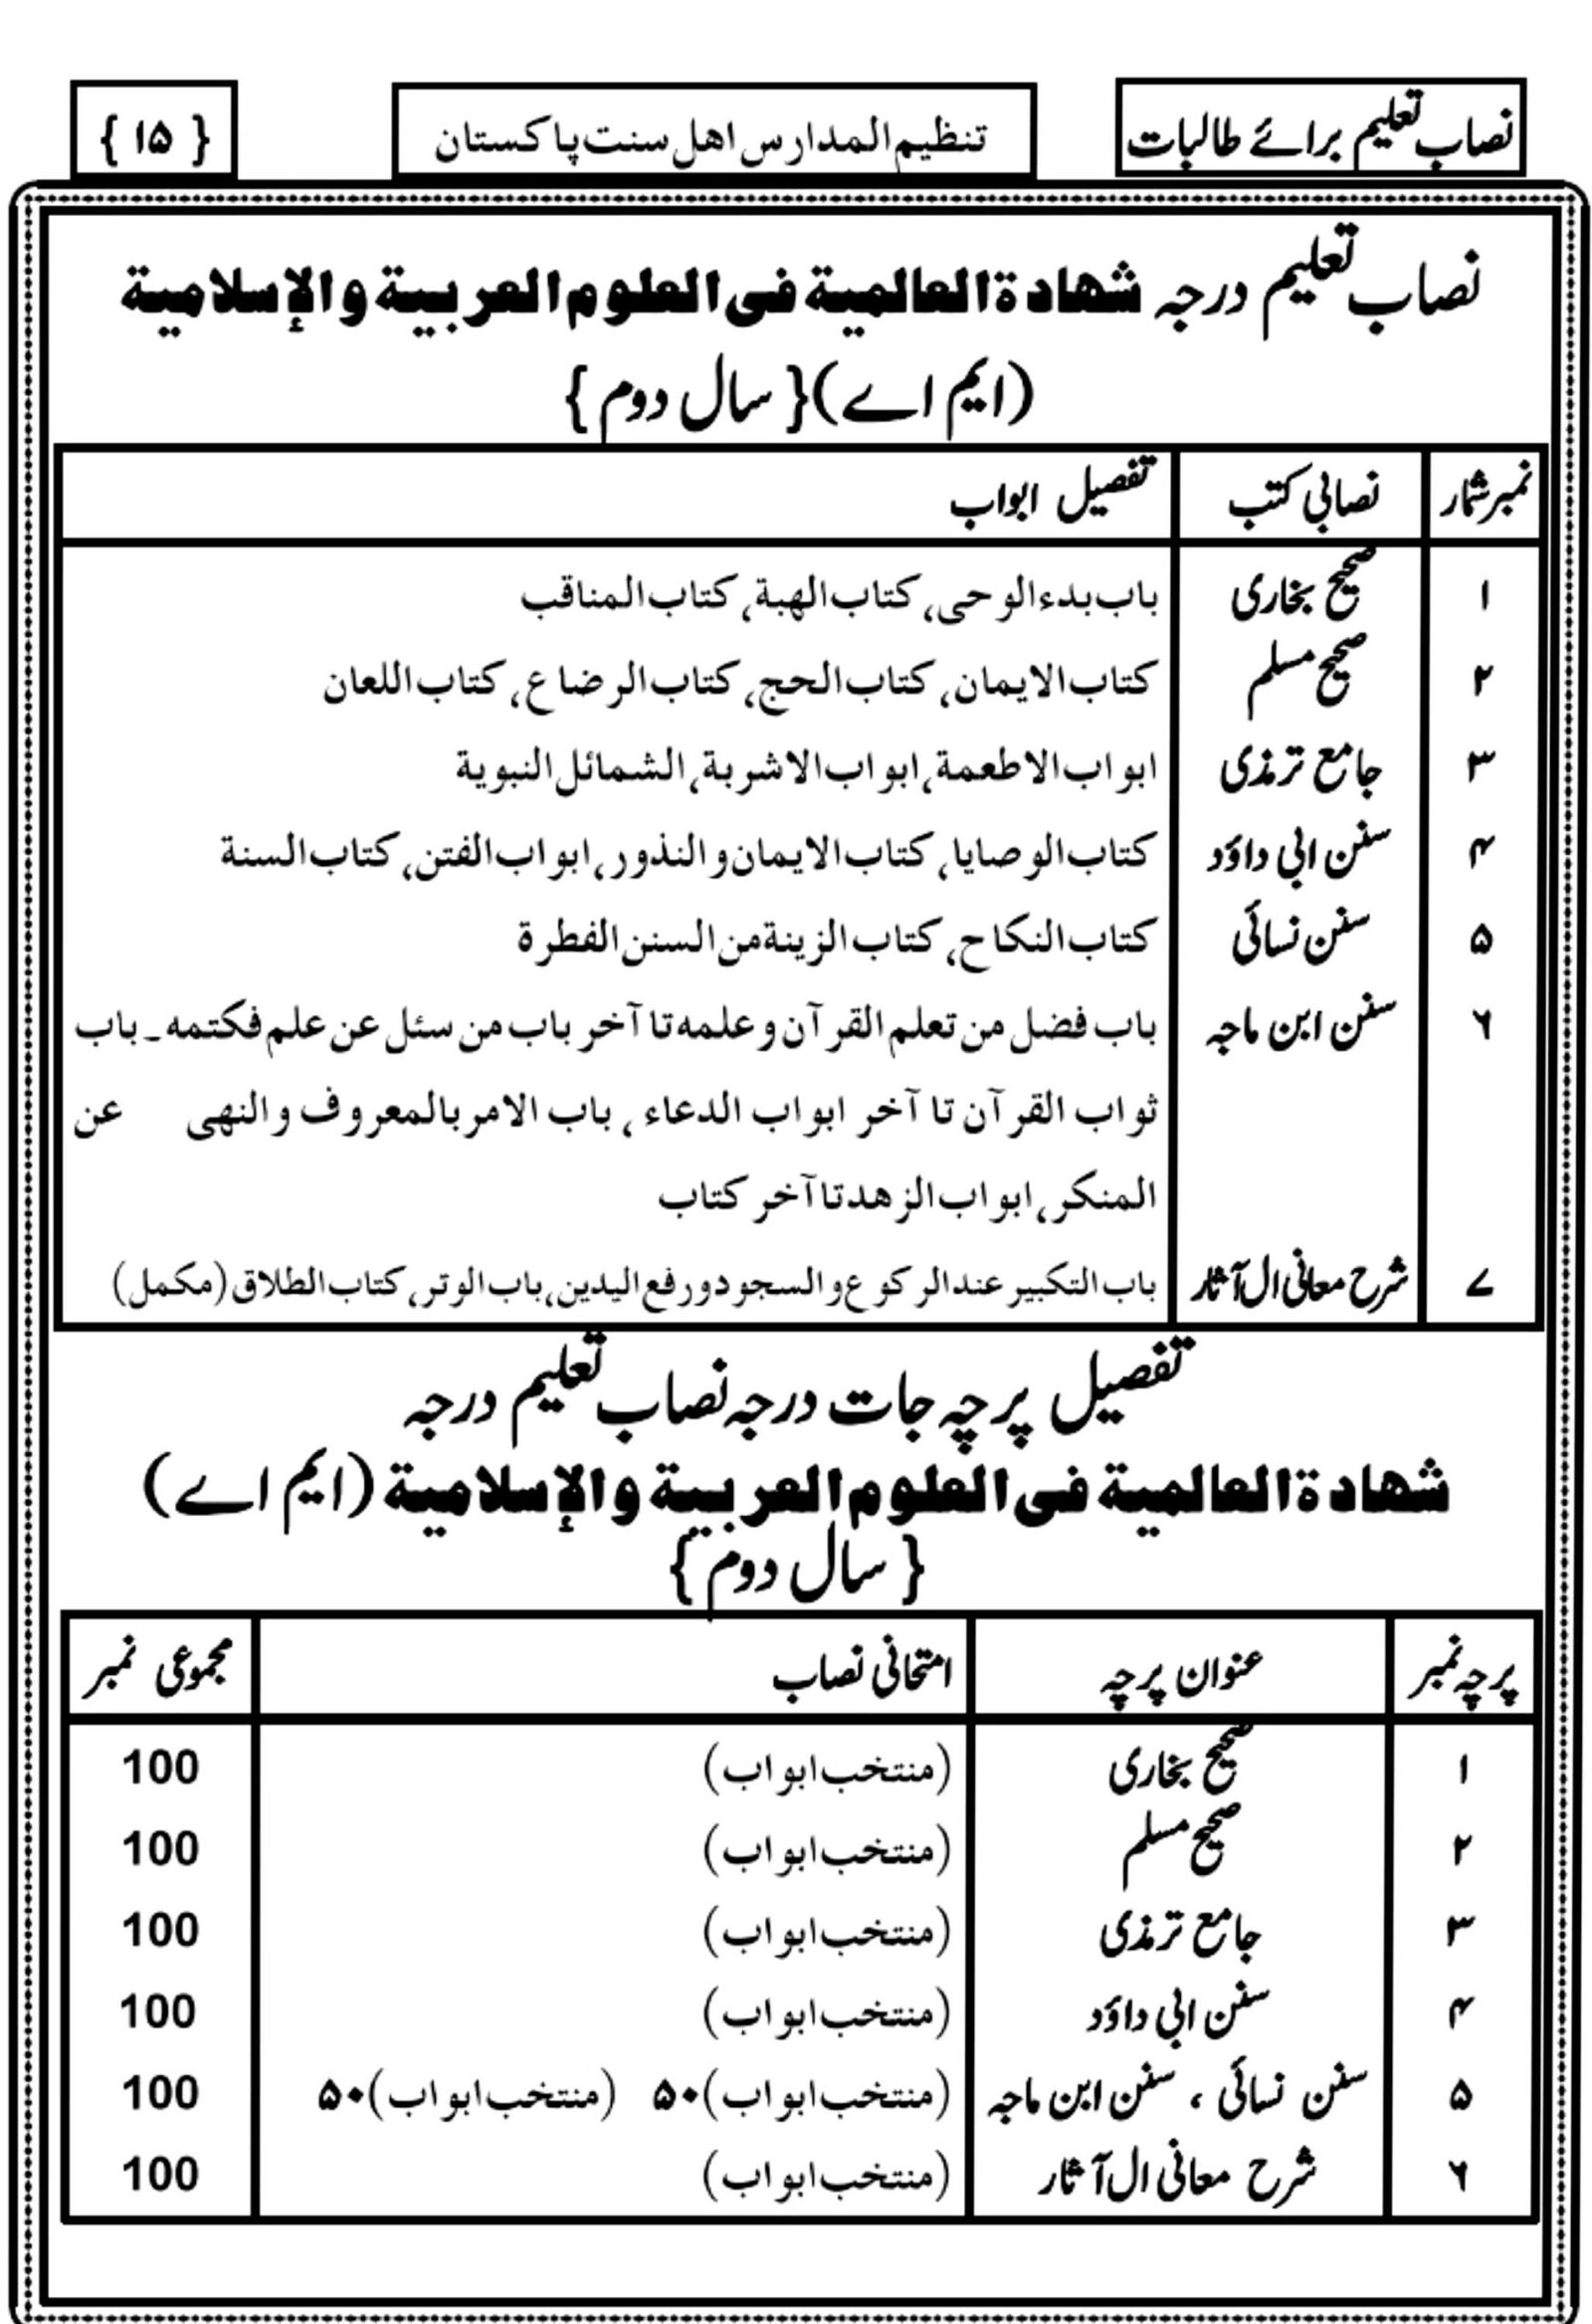 نصاب تعلیم برائے طالبات
تنظیم المدارس اهل سنت پاکستان
{ ۱۵ }
نصاب تعلیم درجہ شهادة العالمية فى العلوم العربية والإسلامية
(ایم اے) { سال دوم }
نمبر شمار نصابی کتب تفصیل ابواب
۱ صحیح بخاری باب بدء الوحی، کتاب الهبة، کتاب المناقب
۲ صحیح مسلم کتاب الایمان، کتاب الحج، کتاب الرضاع، کتاب اللعان
۳ جامع ترمذی ابواب الاطعمة، ابواب الاشربة، الشمائل النبویة
۴ سنن ابی داؤد کتاب الوصایا، کتاب الایمان و النذور، ابواب الفتن، کتاب السنة
۵ سنن نسائی کتاب النکاح، کتاب الزینة من السنن الفطرة
۶ سنن ابن ماجہ باب فضل من تعلم القرآن و علمه تا آخر باب من سئل عن علم فکتمه۔ باب
ثواب القرآن تا آخر ابواب الدعاء ، باب الامر بالمعروف و النهی عن
المنکر، ابواب الزهد تا آخر کتاب
۷ شرح معانی ال آثار باب التکبیر عند الرکوع و السجود و رفع الیدین، باب الوتر، کتاب الطلاق (مکمل)
تفصیل پرچہ جات درجہ نصاب تعلیم درجہ
شهادة العالمية فى العلوم العربية والإسلامية (ایم اے)
{ سال دوم }
پرچہ نمبر عنوان پرچہ امتحانی نصاب مجموعی نمبر
۱ صحیح بخاری (منتخب ابواب) 100
۲ صحیح مسلم (منتخب ابواب) 100
۳ جامع ترمذی (منتخب ابواب) 100
۴ سنن ابی داؤد (منتخب ابواب) 100
۵ سنن نسائی ، سنن ابن ماجہ (منتخب ابواب) ۵۰ (منتخب ابواب) ۵۰ 100
۶ شرح معانی ال آثار (منتخب ابواب) 100